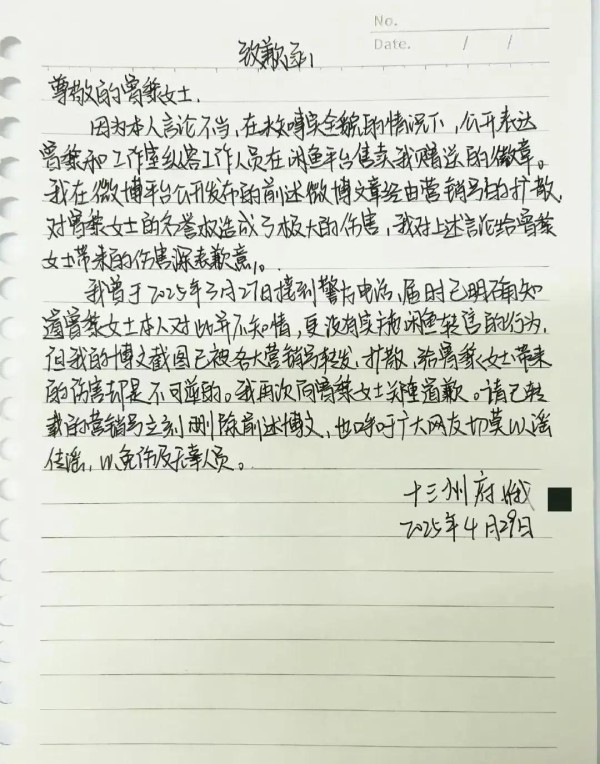 No.
Date. / /
致歉函
尊敬的曾黎女士,
因为本人言论不当,在未核实全貌的情况下,公开表达
曾黎和工作室纵容工作人员在闲鱼平台售卖我赠送的徽章。
我在微博平台公开发布的前述微博文章经由营销号的扩散,
对曾黎女士的名誉权造成了极大的伤害,我对上述言论给曾黎
女士带来的伤害深表歉意。
我曾于2025年3月27日接到警方电话,届时已明确知
道曾黎女士本人对此并不知情,更没有实施闲鱼转售的行为,
但我的博文截图已被各大营销号转发、扩散,给曾黎女士带来
的伤害却是不可逆的。我再次向曾黎女士郑重道歉。请已转
载的营销号立刻删除前述博文,也呼吁广大网友切莫以谣
传谣,以免伤及无辜人员。
十三州府
2025年4月29日